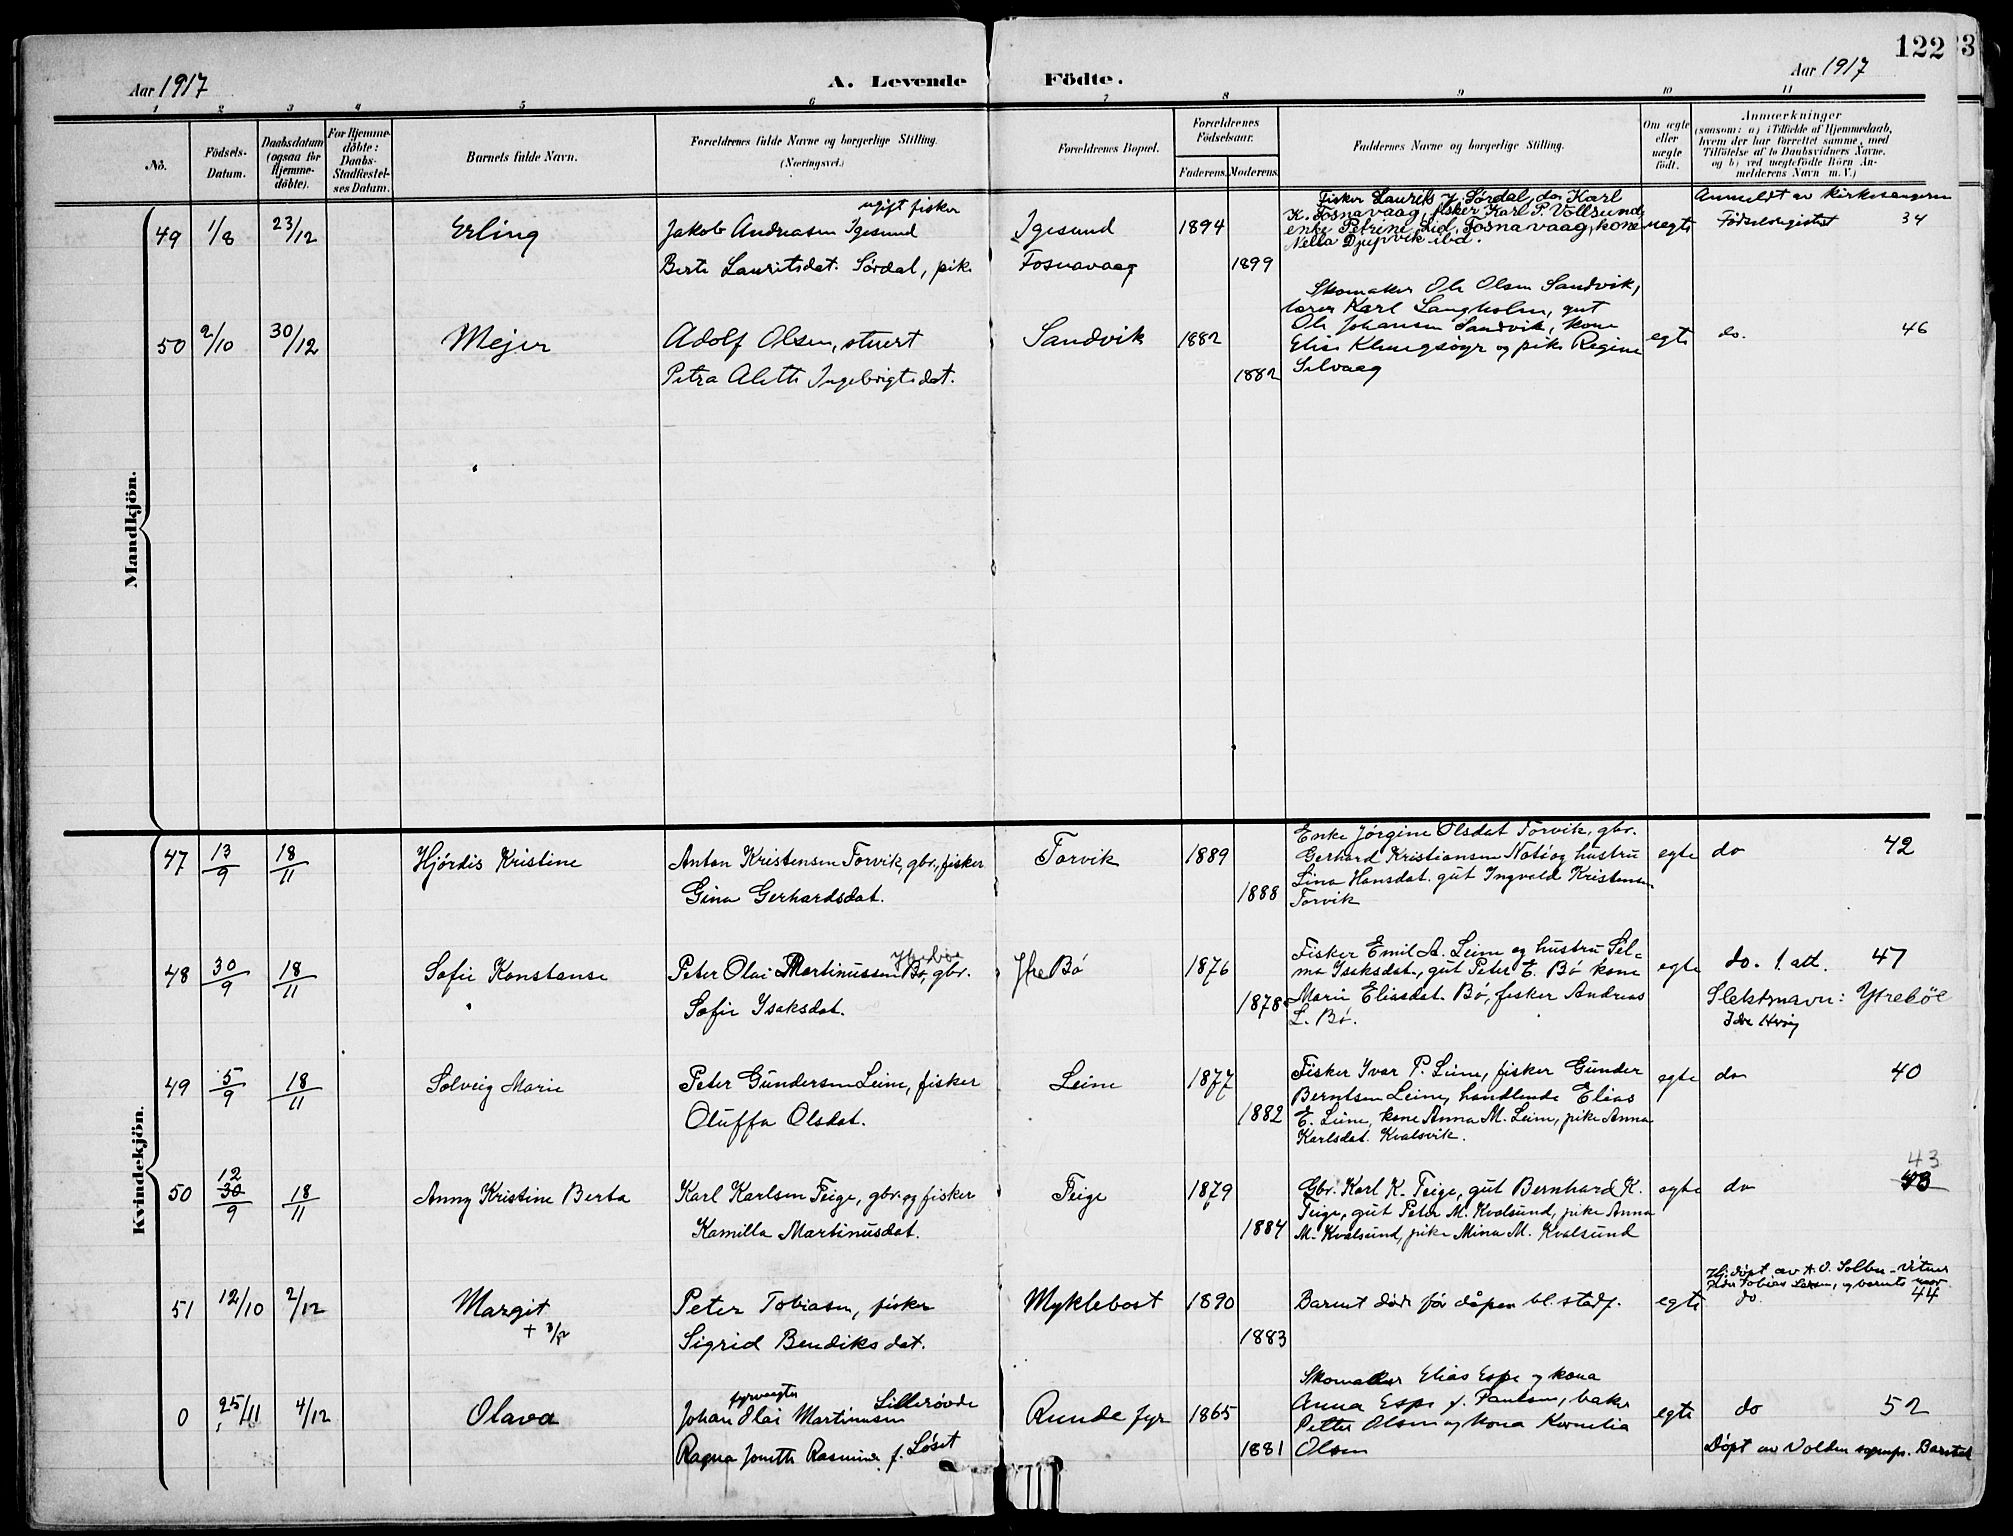 122
3
Aar 1917
A. Levende
Födte.
Aar 1917
1 2 3 4 5 6 7 8 9 10 11
No.
Födsels-
Datum.
Daabsdatum
(ogsaa for
Hjemme-
döbte).
For Hjemme-
döbte:
Daabs-
Stadfæstel-
ses Datum.
Barnets fulde Navn.
Forældrenes fulde Navne og borgerlige Stilling.
(Næringsvei.)
Forældrenes Bopæl.
Forældrenes
Födselsaar.
Faderens. Moderens.
Faddernes Navne og borgerlige Stilling.
Om ægte
eller
uægte
födt.
Anmærkninger
(saasom: a) i Tilfælde af Hjemmedaab,
hvem der har forrettet samme, med
Tilföielse af to Daabsvidners Navne.
og b) ved uegtefödte Börn An-
melderens Navn m. V.)
Mandkjön.
49
1/8
23/12
Erling
ugift fisker
Jakob Andreasen Igesund
Berte Lauritsdat. Sørdal, pike
Igesund
Fosnavaag
1894
1899
Fisker Laurits J. Sørdal, do Karl
K. Fosnavaag, fisker Karl P. Vollsund,
enke Petrine Lid, Fosnavaag, kone
Nella Djupvik ibd.
uegte
Anmeldt av kirkesangeren
Fødselsregistret 34
50
2/10
30/12
Mejer
Adolf Olsen, stuert
Petra Alette Ingebrigtsdat.
Sandvik
1882
1882
Skomaker Ole Olsen Sandvik,
lærer Karl Langholm, gut
Ole Johansen Sandvik, kone
Elise Klungsøyr og pike Regine
Selvaag
egte
do. 46
Kvindekjön.
47
13/9
18/11
Hjördis Kristine
Anton Kristensen Torvik, gbr., fisker
Gina Gerhardsdat.
Torvik
1889
1888
Enke Jörgine Olsdat Torvik, gbr.
Gerhard Kristiansen Notö og hustru
Lina Hansdat. gut Ingvald Kristensen
Torvik
egte
do 42
48
30/9
18/11
Sofie Konstanse
Peter Olai Martinussen Bö, gbr.
Sofie Isaksdat.
Ytre Bö
1876
1878
Fisker Emil A. Leine og hustru Sel-
ma Isaksdat, gut Peter E. Bö kone
Marie Eliasdat. Bö, fisker Andreas
L. Bö.
egte
do. 1 att. 47
Slektsnavn: Ytreböe
49
5/9
18/11
Solveig Marie
Peter Gundersen Leine, fisker
Oluffa Olsdat.
Leine
1877
1882
Fisker Ivar P. Leine, fisker Gunder
Berntsen Leine, handlende Elias
E. Leine, kone Anna M. Leine, pike Anna
Karlsdat. Kvalsvik.
egte
do 40
50
12
30/9
18/11
Anny Kristine Berta
Karl Karlsen Teige, gbr. og fisker
Kamilla Martinusdat.
Teige
1879
1884
Gbr. Karl K. Teige, gut Bernhard K.
Teige, gut Peter M. Kvalsund, pike Anna
M. Kvalsund, pike Mina M. Kvalsund
egte
do 43
43
51
12/10
2/12
Margit
+
Peter Tobiasen, fisker
Sigrid Bendiksdat.
Myklebost
1890
1883
Barnet döde för dåpen bl. stadf.
egte
Hj. döpt av
do 44
0
25/11
4/12
Olava
fyrvogter
Lillerøvde
Johan Olai Martinusen
Ragna Jonette Rasmine f. Løset
Runde fyr
1865
1881
Skomaker Elias Espe og kona
Anna Espe f. Paulsen, baker
Petter Olsen og kona Kornelia
Olsen
egte
do 52
Döpt av Volden sogneps. Barstad